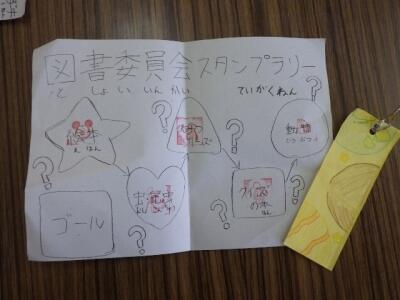 図書委員会スタンプラリー
としょいいんかい ていがくねん
絵本
えほん
動物
どうぶつ
クイズ
の本
ほん
ゴール
?
?
?
?
?
?